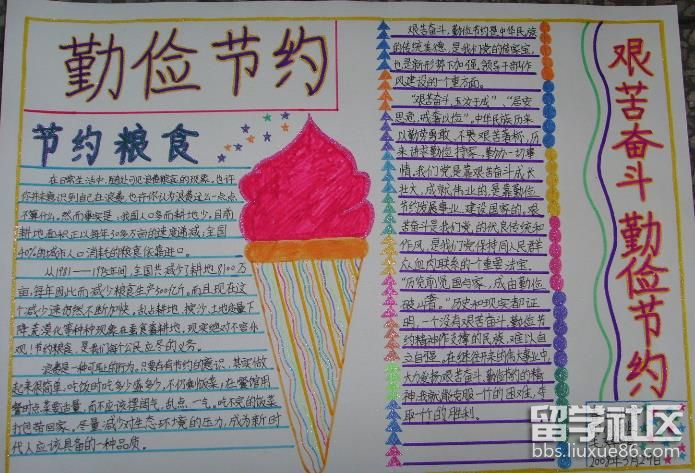 勤俭节约
节约粮食
在日常生活中,随处可见浪费粮食的现象。也许
你并未意识到自己在浪费,也许你认为浪费这么一点点
不算什么,然而事实是:我国人口多而耕地少,且目前
耕地面积正以每年30多万亩的速度递减,全国
40%的城市人口消耗的粮食依靠进口。
从1981—1985年间,全国共减少了耕地8100万
亩,每年因此而减少粮食生产500亿斤,而且现在这
个减少速仍然不断加快,乱占耕地、挖沙、土地质量下
降、荒漠化等种种现象在蚕食着耕地,现实绝对不容乐
观!节约粮食,是我们每个公民应尽的义务。
浪费是一种可耻的行为,只要存有节约的意识,其实做
起来很简单:吃饭时吃多少盛多少,不扔剩饭菜,在餐馆用
餐时点菜要适量,而不应该摆阔气,乱点一气,吃不完的饭菜
打包带回家。尽量减少对生态环境的压力,成为新时
代人应该具备的一种品质。
艰苦奋斗,勤俭节约是中华民族
的传统美德,是我们党的传家宝,
也是新形势下加强领导干部作
风建设的一个重方面。
“艰苦奋斗,玉汝于成”、“居安
思危,戒奢以俭”。中华民族历来
以勤劳勇敢、不畏艰苦著称,历
来讲求勤俭持家、勤俭办一切事
情。我们党是靠艰苦奋斗成长
壮大,成就伟业的,是靠勤俭
节约发展事业、建设国家的。艰
苦奋斗是我们党的优良传统和
作风,是我们党保持同人民群
众血肉联系的一个重要法宝。
“历览前贤国与家,成由勤俭
破由奢。”历史和现实都证
明,一个没有艰苦奋斗、勤俭节
约精神作支撑的民族,难以自
立自强。在继往开来的伟大事业中,
大力发扬艰苦奋斗、勤俭节约的精
神我就能克服一切的困难,夺
取一切的胜利。
艰苦奋斗 勤俭节约
留学社区
bbs.liuxue86.com